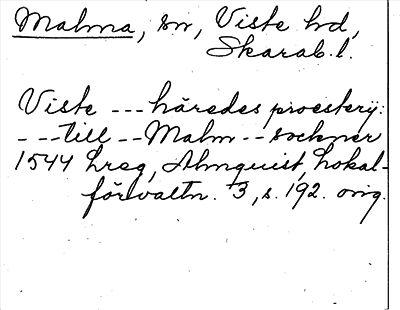 Malma, sn, Viste hd,
Skarab.l.
Viste --- häredes proesterij:
---till --Malm--sockner
1544 Lreg, Almquist, Lokal-
förvaltn. 3, s. 192. orig.